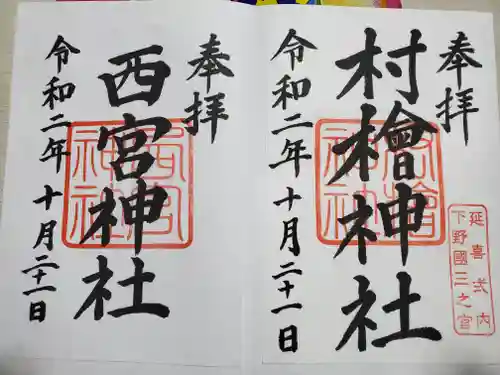 奉拝
村檜神社
令和二年十月二十一日
延喜式内
下野國三之宮
村檜神社
奉拝
西宮神社
令和二年十月二十一日
西宮神社